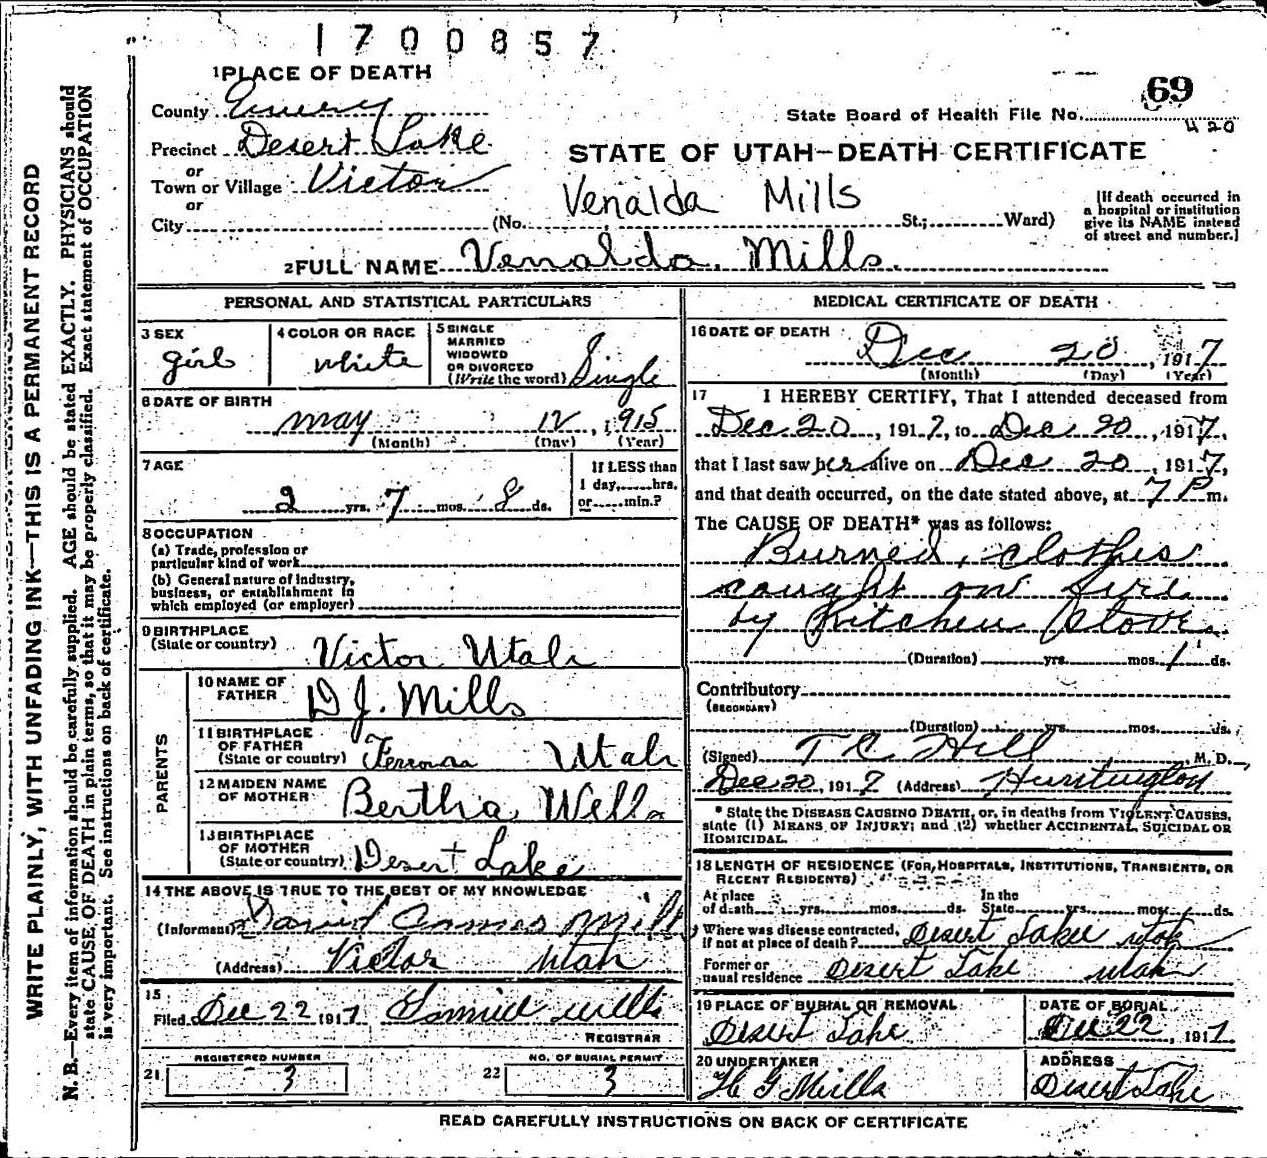 1700857
1 PLACE OF DEATH
69
County Emery
State Board of Health File No.
420
Precinct Desert Lake
STATE OF UTAH—DEATH CERTIFICATE
or
Town or Village Victor
Venalda Mills
or
City (No. St.; Ward)
[If death occurred in
a hospital or institution
give its NAME instead
of street and number.]
2 FULL NAME Venalda Mills.
PERSONAL AND STATISTICAL PARTICULARS
3 SEX
girl
4 COLOR OR RACE
white
5 SINGLE
MARRIED
WIDOWED
OR DIVORCED
(Write the word) Single
6 DATE OF BIRTH
May 12, 1915
(Month) (Day) (Year)
7 AGE
2 yrs. 7 mos. 8 ds.
If LESS than
1 day, hrs.
or min.?
8 OCCUPATION
(a) Trade, profession or
particular kind of work
(b) General nature of industry,
business, or establishment in
which employed (or employer)
9 BIRTHPLACE
(State or country) Victor Utah
PARENTS
10 NAME OF
FATHER D J. Mills
11 BIRTHPLACE
OF FATHER
(State or country) Utah
12 MAIDEN NAME
OF MOTHER Bertha Wells
13 BIRTHPLACE
OF MOTHER
(State or country) Desert Lake
14 THE ABOVE IS TRUE TO THE BEST OF MY KNOWLEDGE
(Informant) David Mills
(Address) Victor Utah
15
Filed Dec 22 1917
REGISTRAR
REGISTERED NUMBER
21 3
NO. OF BURIAL PERMIT
22 3
MEDICAL CERTIFICATE OF DEATH
16 DATE OF DEATH
Dec 20, 1917
(Month) (Day) (Year)
17 I HEREBY CERTIFY, That I attended deceased from
Dec 20, 1917, to Dec 20, 1917,
that I last saw her alive on Dec 20, 1917,
and that death occurred, on the date stated above, at 7 P m.
The CAUSE OF DEATH* was as follows:
Burned, clothes
caught on fire
by Kitchen Stove.
(Duration) yrs. mos. 1 ds.
Contributory
(SECONDARY)
(Duration) yrs. mos. ds.
(Signed) T C Hill M. D.
Dec 20, 1917 (Address) Huntington
* State the DISEASE CAUSING DEATH, or, in deaths from VIOLENT CAUSES,
state (1) MEANS OF INJURY; and (2) whether ACCIDENTAL, SUICIDAL OR
HOMICIDAL.
18 LENGTH OF RESIDENCE (FOR HOSPITALS, INSTITUTIONS, TRANSIENTS, OR
RECENT RESIDENTS)
At place
of death yrs. mos. ds.
In the
State yrs. mos. ds.
Where was disease contracted,
if not at place of death? Desert Lake Utah
Former or
usual residence Desert Lake Utah
19 PLACE OF BURIAL OR REMOVAL
Desert Lake
DATE OF BURIAL
Dec 22, 1917
20 UNDERTAKER
H G Mills
ADDRESS
Desert Lake
READ CAREFULLY INSTRUCTIONS ON BACK OF CERTIFICATE
WRITE PLAINLY, WITH UNFADING INK—THIS IS A PERMANENT RECORD
N. B.—Every item of information should be carefully supplied. AGE should be stated EXACTLY. PHYSICIANS should
state CAUSE OF DEATH in plain terms, so that it may be properly classified. Exact statement of OCCUPATION
is very important. See instructions on back of certificate.